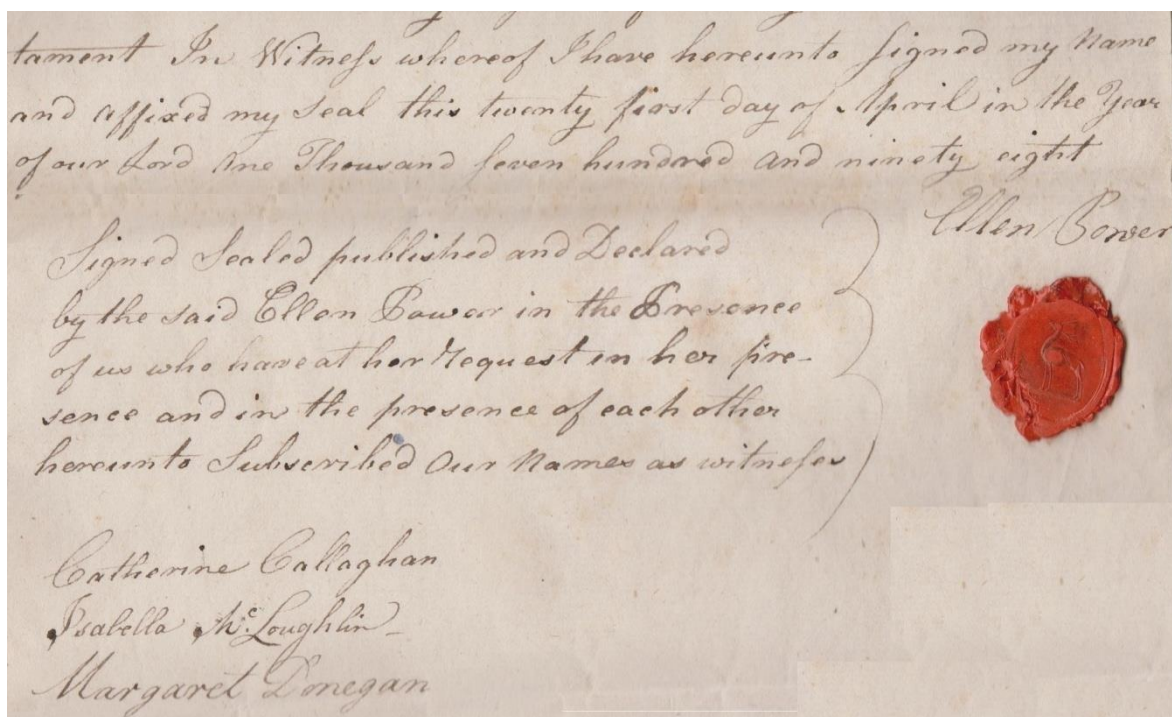 tament In Witness whereof I have hereunto Signed my Name
and affixed my Seal this twenty first day of April in the Year
of our Lord One Thousand Seven hundred and ninety eight
Ellen Power
Signed Sealed published and Declared
by the said Ellen Power in the Presence
of us who have at her request in her pre-
sence and in the presence of each other
hereunto Subscribed Our Names as witnesses
Catherine Callaghan
Isabella McLoughlin
Margaret Donegan